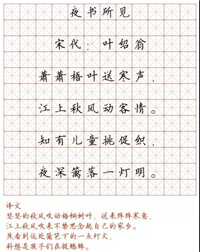 夜书所见
宋代：叶绍翁
萧萧梧叶送寒声，
江上秋风动客情。
知有儿童挑促织，
夜深篱落一灯明。
译文
瑟瑟的秋风吹动梧桐树叶，送来阵阵寒意，
江上秋风吹来不禁思念起自己的家乡。
忽然看到远处篱笆下的一点灯火，
料想是孩子们在捉蟋蟀。